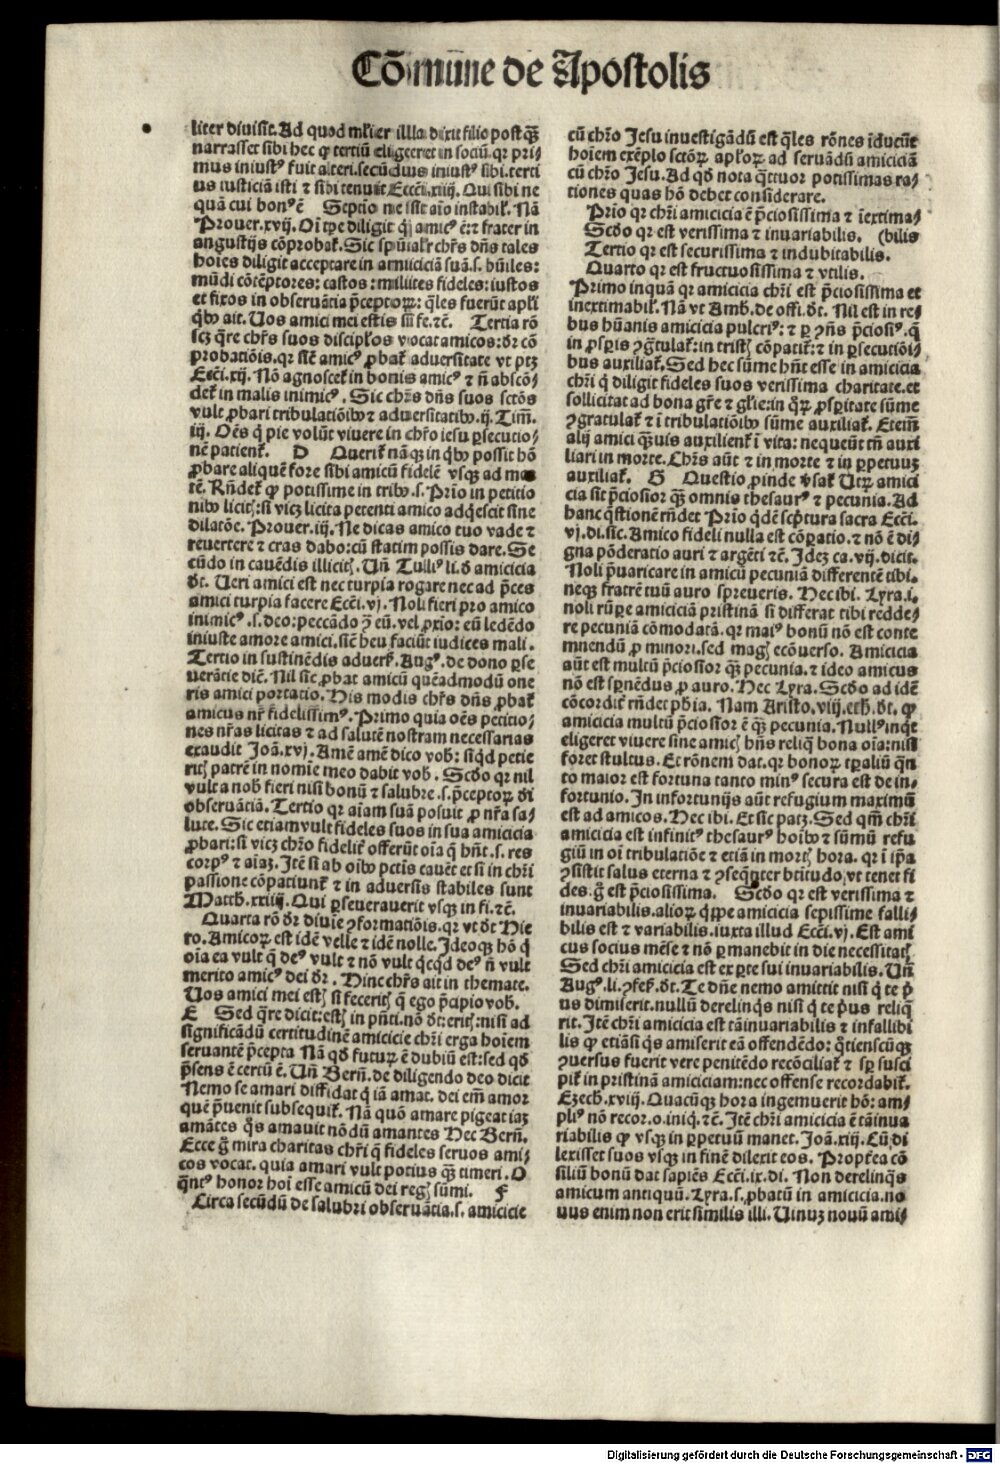 Cōmūne de Apostolis
liter diuisit. Ad quod mīter illa dixit filio postqȝ
narrasset sibi hec ꝙ tertiū eligeret in sociū. qr pri⸗
mus iniustꝰ fuit alteri. secūdus iniustꝰ sibi. terti
us iusticiā isti ⁊ sibi tenuit Eccī. xiiij. Qui sibi ne
quā cui bonꝰ ē Septīo ne sit aīo instabil. Nā
Prouer. xvij. Oī tꝑe diligit qͥ amicꝰ ē: ⁊ frater in
angustijs cōprobat. Sic spūalr chrs dn̄s tales
hoīes diligit acceptare in amiciciā suā. s. hūiles:
mūdi cōtēptores: castos: milites fideles: iustos
et fixos in obseruātia p̄ceptoꝝ: q̄les fuerūt apl̄i
qͥbꝰ ait. Vos amici mei estis si fe. ⁊c̄. Tertia rō
scꝫ qͣre chr̄s suos discipl̄os vocat amicos: dr cō
probatiōis. qr sic̄ amicꝰ ꝓbat aduersitate vt ptꝫ
Eccī. xij. Nō agnoscet in bonis amicꝰ ⁊ n̄ abscō⸗
det in malis inimicꝰ. Sic chr̄s dn̄s suos sctōs
vult ꝓbari tribulatiōibꝰ ⁊ aduersitatibꝰ. ij. Tim̄.
iij. Oēs qͥ pie volūt viuere in chrō iesu ꝑsecutio⸗
nē patient. D Querit nāqȝ in qͥbꝰ possit hō
ꝓbare aliquē fore sibi amicū fidelē vsqȝ ad mor
tē. Rn̄det ꝙ potissime in tribꝰ. s. Prīo in petitio
nibꝰ licitꝭ: si vicꝫ licita petenti amico adq̄escit sine
dilatōe. Prouer. iij. Ne dicas amico tuo vade ⁊
reuertere ⁊ cras dabo: cū statim possis dare. Se
cūdo in cauēdis illicitꝭ. Vn̄ Tulliꝰ li. d̄ amicicia
d̄t. Veri amici est nec turpia rogare nec ad p̄ces
amici turpia facere Eccī. vj. Noli fieri pro amico
inimicꝰ. s. deo: peccādo ꝯ eū. vel ꝓxio: eū ledēdo
iniuste amore amici. sic̄ heu faciūt iudices mali.
Tertio in sustinēdis aduerſ. Augꝰ. de dono ꝑse
uerātie dic̄. Nil sic ꝓbat amicū quēadmodū one
ris amici portatio. His modis chr̄s dn̄s ꝓbat
amicus nr̄ fidelissimꝰ. Primo quia oēs petitio⸗
nes nr̄as licitas ⁊ ad salutē nostram necessarias
exaudit Joā. xvj. Amē amē dico vob: si qͥd petie
ritꝭ patrē in nomīe meo dabit vob. Scd̄o qr nil
vult a nob fieri nisi bonū ⁊ salubre. s. p̄ceptoꝝ di
obseruātiā. Tertio qr aīam suā posuit ꝓ nr̄a sa⸗
lute. Sic etiam vult fideles suos in sua amicicia
ꝓbari: si vicꝫ chr̄o fidelit̄ offerūt oīa q̄ hn̄t. s. res
corpꝰ ⁊ aīaꝫ. Itē si ab oībꝰ pctīs cauēt et si in chr̄i
passione cōpatiunt ⁊ in aduersis stabiles sunt
Matth. xxiiij. Qui ꝑseuerauerit vsqȝ in fi. ⁊c̄.
Quarta rō dr diuīe ꝯformatiōis. qr vt d̄t Hie
ro. Amicoꝝ est idē velle ⁊ idē nolle. Ideoqȝ hō qͥ
oīa ea vult q̄ deꝰ vult ⁊ nō vult qͥcqͥd deꝰ n̄ vult
merito amicꝰ dei dr. Hinc chr̄s ait in themate.
Vos amici mei estꝭ si feceritꝭ q̄ ego p̄cipio vob.
E Sed qͣre dicit: estꝭ in pn̄ti. nō d̄t: eritꝭ: nisi ad
significādū certitudinē amicicie chr̄i erga hoīem
seruantē p̄cepta Nā qd̄ futuꝝ ē dubiū est: sed qd̄
p̄sens ē certū ē. Vn̄ Bern̄. de diligendo deo dicit
Nemo se amari diffidat qͥ iā amat. dei em̄ amor
quē p̄uenit subsequit. Nā quō amare pigeat iaꝫ
amātes qͦs amauit nōdū amantes Hec Bern̄.
Ecce gͦ mira charitas chr̄i qͥ fideles seruos ami⸗
cos vocat. quia amari vult potius qȝ timeri. O
qͣntꝰ honor hoī esse amicū dei regꝭ sūmi. F
Circa secūdū de salubri obseruātia. s. amicicie
cū chr̄o Jesu inuestigādū est q̄les rōnes īducūt
hoīem exēplo sctōꝝ apl̄oꝝ ad seruādū amiciciā
cū chr̄o Jesu. Ad qd̄ nota qͣttuor potissimas ra⸗
tiones quas hō debet considerare.
Prīo qr chr̄i amicicia ē p̄ciosissima ⁊ īextima⸗
Scd̄o qr est verissima ⁊ inuariabilis. (bilis
Tertio qr est securissima ⁊ indubitabilis.
Quarto qr est fructuosissima ⁊ vtilis.
Primo inquā qr amicicia chr̄i est p̄ciosissima et
inextimabil. Nā vt Amb. de offi. d̄t. Nil est in re⸗
bus hūanis amicicia pulcriꝰ: ⁊ ꝑ ꝯn̄s p̄ciosiꝰ. q̄
in ꝓsꝑis ꝯgͣtulat: in tristꝭ cōpatit: ⁊ in ꝑsecutiōi⸗
bus auxiliat. Sed hec sūme hn̄t esse in amicicia
chr̄i qͥ diligit fideles suos verissima charitate. et
sollicitat ad bona gr̄e ⁊ gl̄ie: in qͣꝝ ꝓsꝑitate sūme
ꝯgratulat ⁊ ī tribulatiōibꝰ sūme auxiliat. Etem̄
alij amici qͣuis auxilient ī vita: nequeūt tn̄ auxi
liari in morte. Chr̄s aūt ⁊ in morte ⁊ in ꝑpetuuꝫ
auxiliat. G Questio ꝓinde ꝟsat Vtꝝ amici
cia sit p̄ciosior qȝ omnis thesaurꝰ ⁊ pecunia. Ad
hanc qͣstionē rn̄det Prīo qͥdē scp̄tura sacra Eccī.
vj. di. sic. Amico fideli nulla est cōꝑatio. ⁊ nō ē di⸗
gna pōderatio auri ⁊ argēti ⁊c̄. Idez ca. vij. dicit.
Noli p̄uaricare in amicū pecuniā differentē tibi.
neqȝ fratrē tuū auro spreueris. Hec ibi. Lyra. i.
noli rūꝑe amiciciā pristinā si differat tibi redde⸗
re pecuniā cōmodatā. qr maiꝰ bonū nō est conte
mnendū ꝓ minori. sed magꝭ ecōuerso. Amicicia
aūt est multū p̄ciosior qȝ pecunia. ⁊ ideo amicus
nō est sꝑnēdus ꝓ auro. Hec Lyra. Scd̄o ad idē
cōcordit̄ rn̄det ph̄ia. Nam Aristo. viij. eth. d̄t. ꝙ
amicicia multū p̄ciosior ē qȝ pecunia. Nullꝰ inqͥt
eligeret viuere sine amicꝭ hn̄s reliqͣ bona oīa: nisi
foret stultus. Et rōnem dat. qr bonoꝝ tꝑaliū qͣn
to maior est fortuna tanto minꝰ secura est de in⸗
fortunio. In infortunijs aūt refugium maximū
est ad amicos. Hec ibi. Et sic patꝫ. Sed qm̄ chr̄i
amicicia est infinitꝰ thesaurꝰ hoībꝰ ⁊ sūmū refu
giū in oī tribulatiōe ⁊ etiā in mortꝭ hora. qr ī ip̄a
ꝯsistit salus eterna ⁊ ꝯseqͣnter btītudo, vt tenet fi
des. gͦ est p̄ciosissima. Scd̄o qr est verissima ⁊
inuariabilis. alioꝝ qͥppe amicicia sepissime falli⸗
bilis est ⁊ variabilis. iuxta illud Eccī. vj. Est ami
cus socius mēse ⁊ nō ꝑmanebit in die necessitatꝭ
Sed chr̄i amicicia est ex ꝑte sui inuariabilis. Vn̄
Augꝰ. li. ꝯfeſ. d̄t. Te dn̄e nemo amittit nisi qͥ te pͥ
us dimiserit. nullū derelinqͥs nisi qͥ te pͥus reliqͥ
rit. Itē chr̄i amicicia est tā inuariabilis ⁊ infallibi
lis ꝙ etiā si qͥs amiserit eā offendēdo: qͦtienscūqȝ
ꝯuersus fuerit vere penitēdo recōciliat ⁊ sꝑ susci
pit in pristinā amiciciam: nec offense recordabit.
Ezech. xviij. Quacūqȝ hora ingemuerit hō: am⸗
pliꝰ nō recor. o. iniqͥ. ⁊c̄. Itē chr̄i amicicia ē tā inua
riabilis ꝙ vsqȝ in ꝑpetuū manet. Joā. xiij. Cū di
lexisset suos vsqȝ in finē dilexit eos. Propt̄ea cō
siliū bonū dat sapiēs Eccī. ix. di. Non derelinqͣs
amicum antiquū. Lyra. s. ꝓbatū in amicicia. no
uus enim non erit similis illi. Vinuꝫ nouū ami⸗
Digitalisierung gefördert durch die Deutsche Forschungsgemeinschaft - DFG